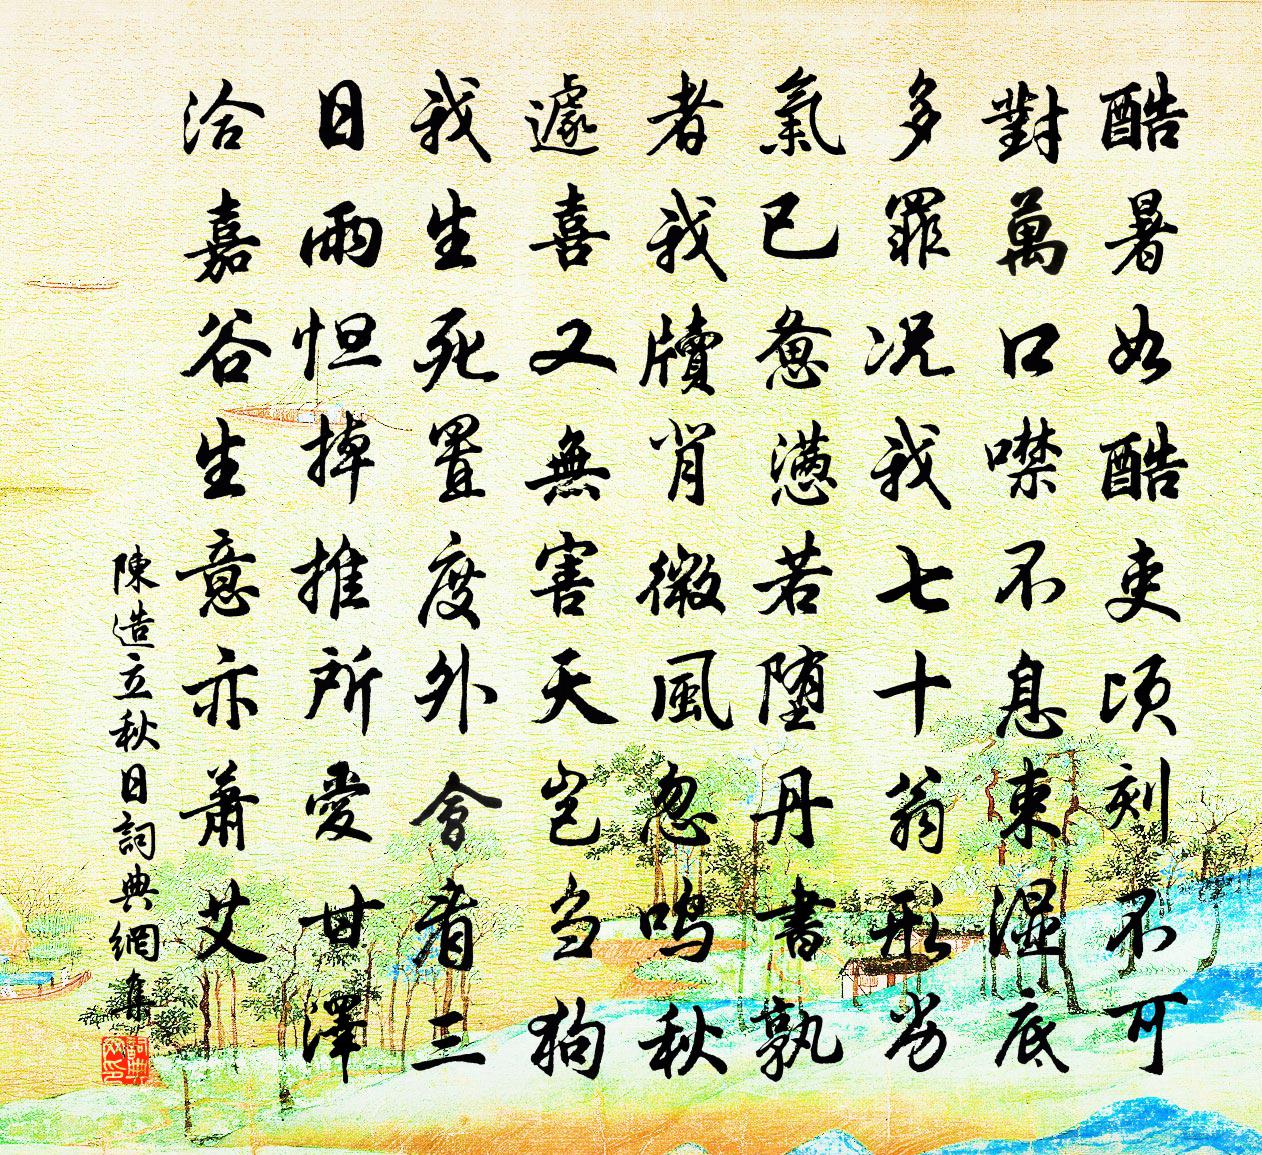 酷暑如酷吏頃刻不可
對萬口噤不息束濕底
多罪況我七十翁形劣
氣已惫懑若堕丹書孰
者我牘肯微風忽鳴秋
遽喜又無害天豈刍狗
我生死置度外會看三
日雨怛掉推所愛甘澤
洽嘉谷生意亦蕭艾
陳造立秋日詞典網集